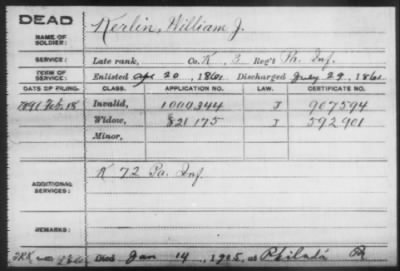 DEAD
NAME OF SOLDIER: Kerlin, William J.
SERVICE: Late rank, Co. K, 3 Reg't Pa. Inf.
TERM OF SERVICE: Enlisted Apr 20, 1861 Discharged July 29, 1861
DATE OF FILING. CLASS. APPLICATION NO. LAW. CERTIFICATE NO.
1891 Feb. 18 Invalid, 1000344 J 907594
Widow, 821175 J 592901
Minor,
ADDITIONAL SERVICES: K 72 Pa. Inf.
REMARKS:
Died Jan 14, 1905, at Philada Pa